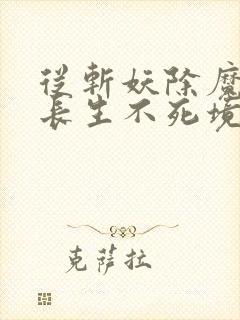 從斬妖除魔
長生不死境
克萊拉